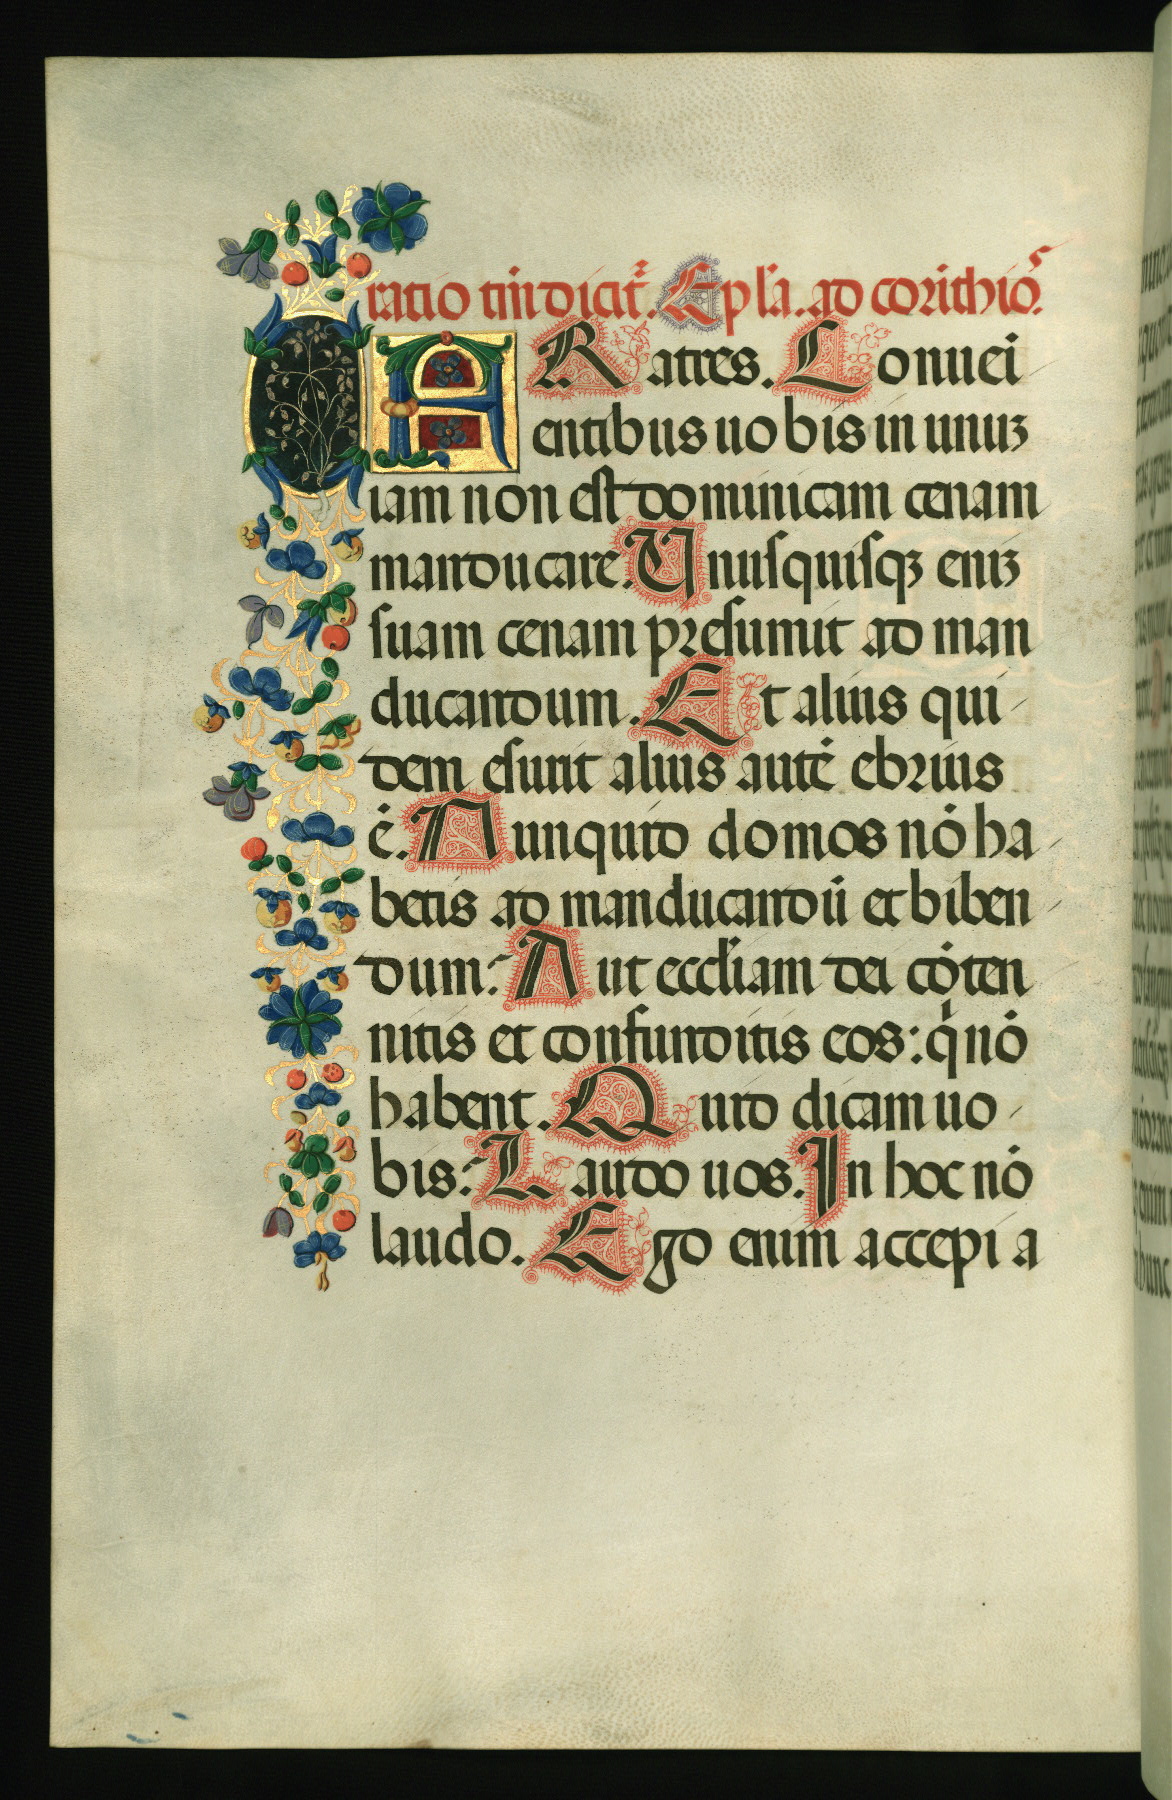 ratio tm̄ dicit᷑. Epl̄a. ad corithiō.
FRatres. Conuei
entibus uobis in unuꝫ
iam non est dominicam cenam
manducare. Unusquisqꝫ eniꝫ
suam cenam presumit ad man
ducandum. Et alius qui
dem esurit alius autē ebrius
ē. Nunquid domos nō ha
betis ad manducandū et biben
dum? Aut eccl̄iam dei cōten
nitis et confunditis eos: q̄ nō
habent. Quid dicam uo
bis? Laudo uos. In hoc nō
laudo. Ego enim accepi a